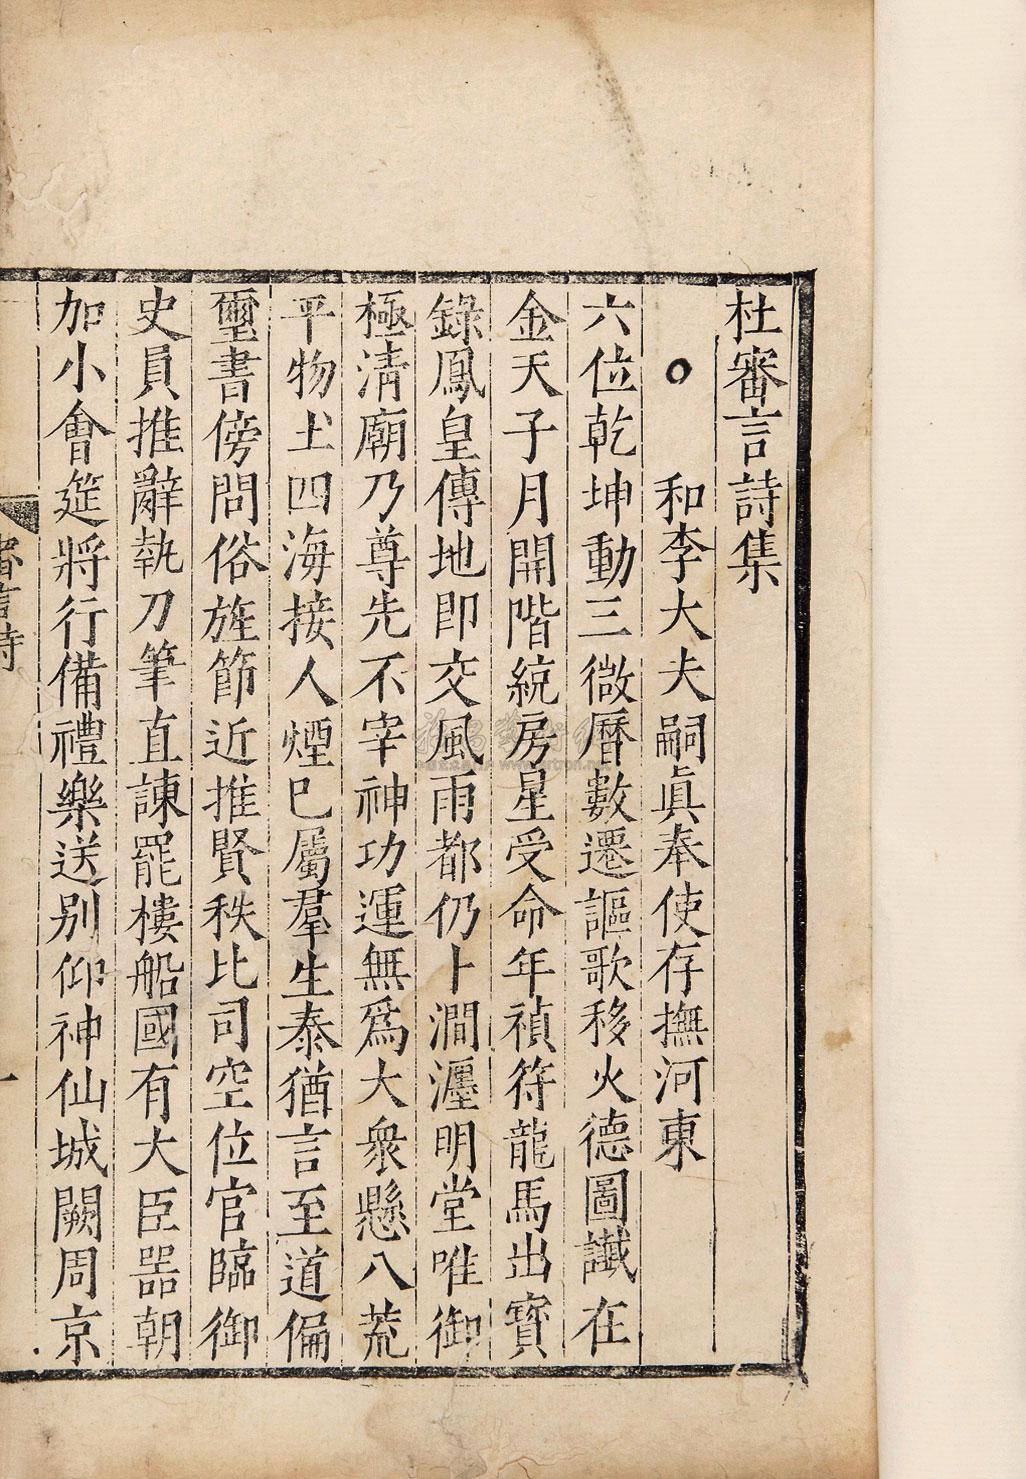 杜審言詩集
○ 和李大夫嗣眞奉使存撫河東
六位乾坤動三微曆數遷謳歌移火德圖讖在
金天子月開階統房星受命年禎符龍馬出寳
錄鳳皇傳地即交風雨都仍卜澗瀍明堂唯御
極清廟乃尊先不宰神功運無爲大衆懸八荒
平物土四海接人煙已屬羣生泰猶言至道偏
璽書傍問俗旌節近推賢秩比司空位官臨御
史員推辭執刀筆直諫罷樓船國有大臣噐朝
加小會筵將行備禮樂送别仰神仙城闕周京
審言詩
一